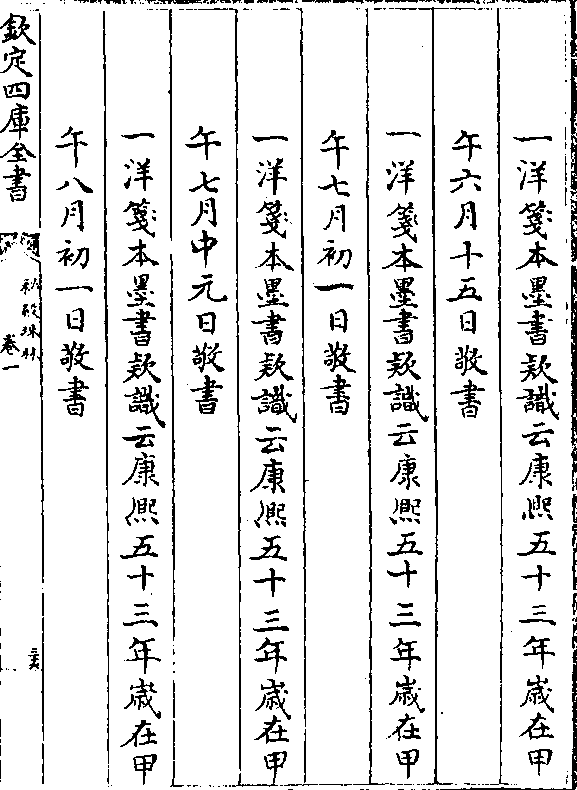 一洋箋本墨書欵識云康熈五十三年嵗在甲
午六月十五日敬書
一洋箋本墨書欵識云康熈五十三年嵗在甲
午七月初一日敬書
一洋箋本墨書欵識云康熈五十三年嵗在甲
午七月中元日敬書
一洋箋本墨書欵識云康熈五十三年嵗在甲
午八月初一日敬書
欽定四庫全書
秘殿珠林
卷一